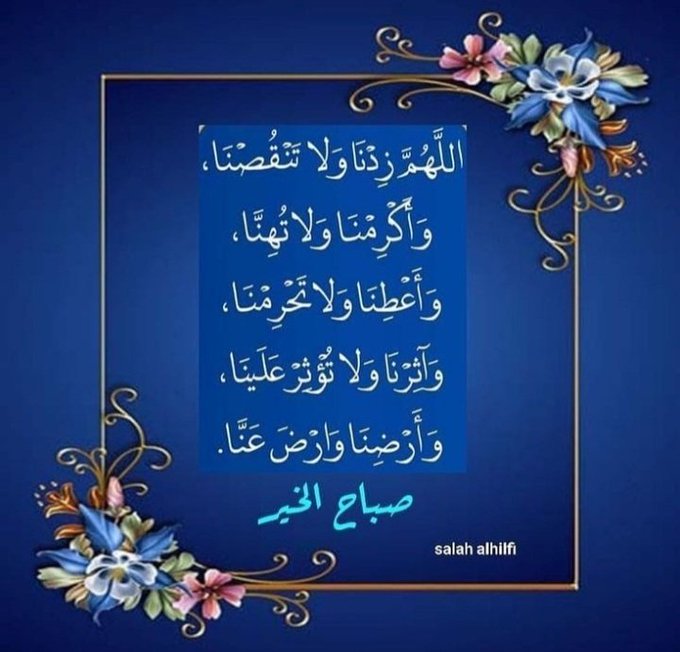 اللَّهُمَّ زِدْنَا وَلا تَنْقُصْنَا،
وَأَكْرِمْنَا وَلا تُهِنَّا،
وَأَعْطِنَا وَلا تَحْرِمْنَا،
وَآثِرْنَا وَلا تُؤْثِرْ عَلَينَا،
وَأَرْضِنَا وَارْضَ عَنَّا.
صباح الخير
salah alhilfi